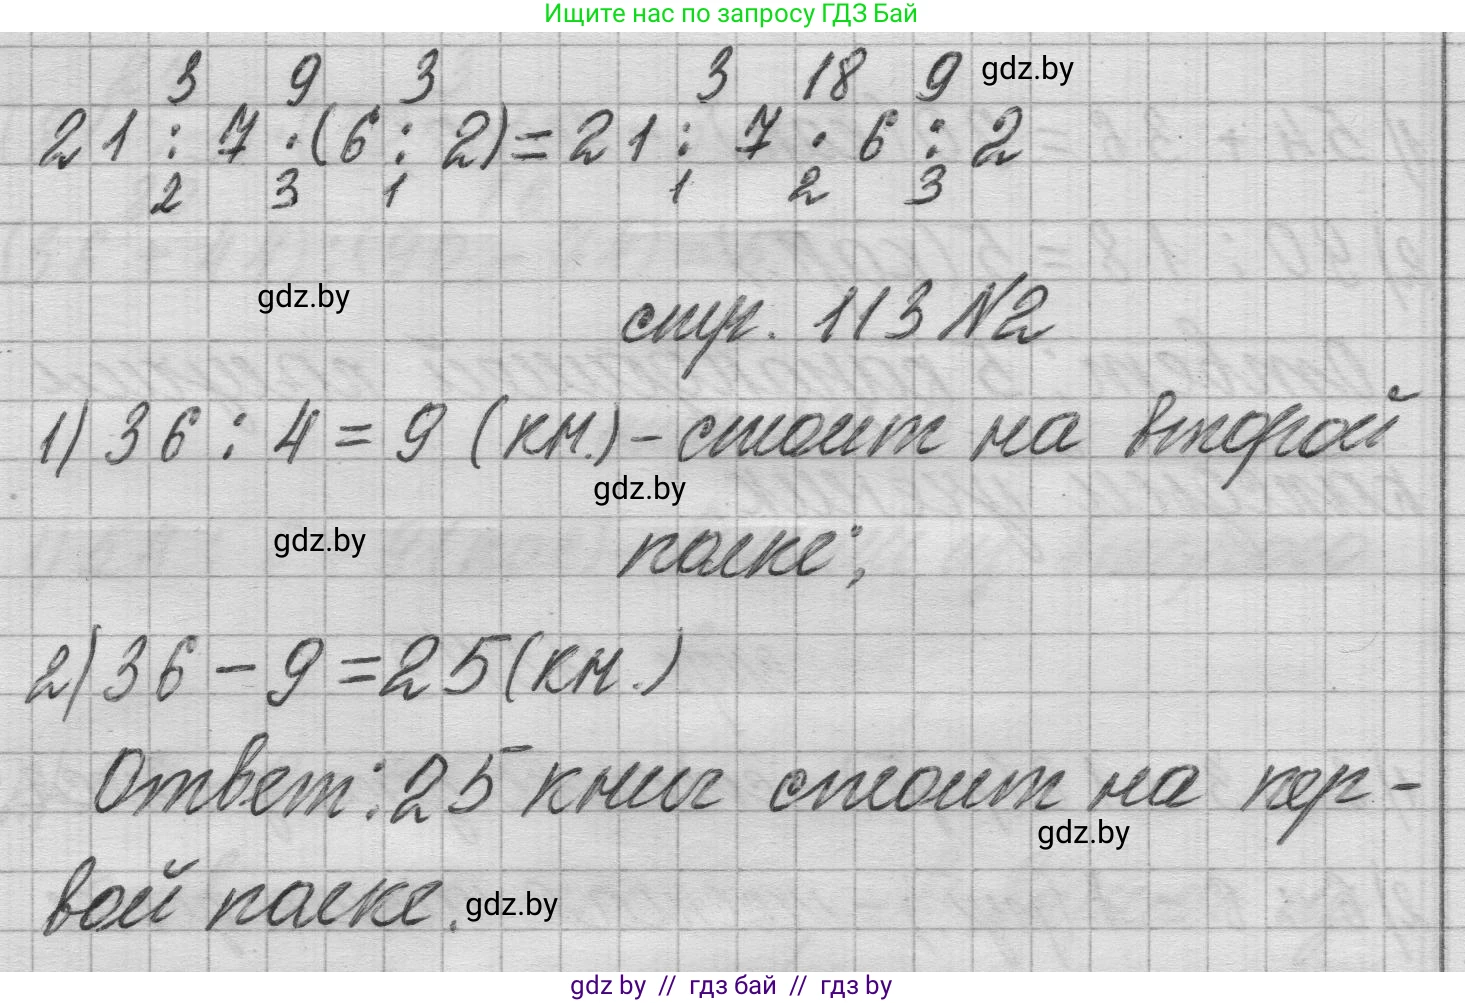 Ищите нас по запросу ГДЗ Бай
3 9 3 3 18 9 gdz.by
21 : 7 · (6 : 2) = 21 : 7 · 6 : 2
2 3 1 1 2 3
gdz.by
стр. 113 №2
1) 36 : 4 = 9 (кн.) - стоит на второй
gdz.by
gdz.by
полке;
2) 36 - 9 = 25 (кн.)
Ответ: 25 книг стоит на пер-
gdz.by
вой полке. gdz.by
gdz by // гдз бай // гдз by